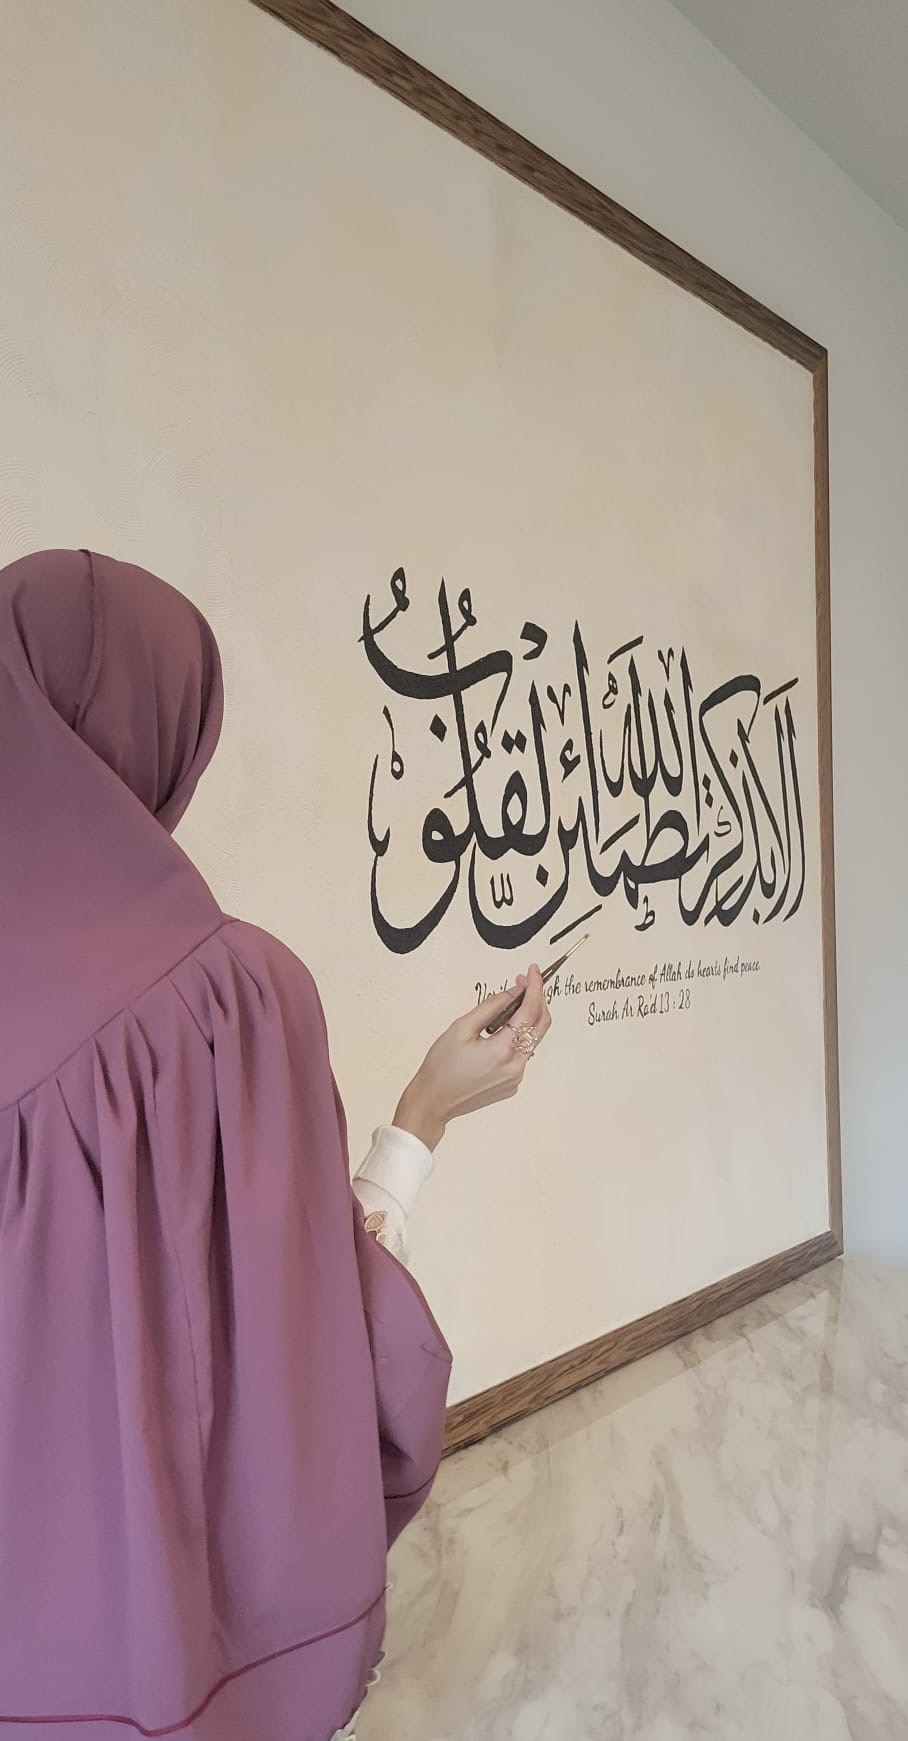 أَلَا بِذِكْرِ اللَّهِ تَطْمَئِنُّ الْقُلُوبُ
the remembrance of Allah do hearts find peace.
Surah Ar Ra'd 13 : 28